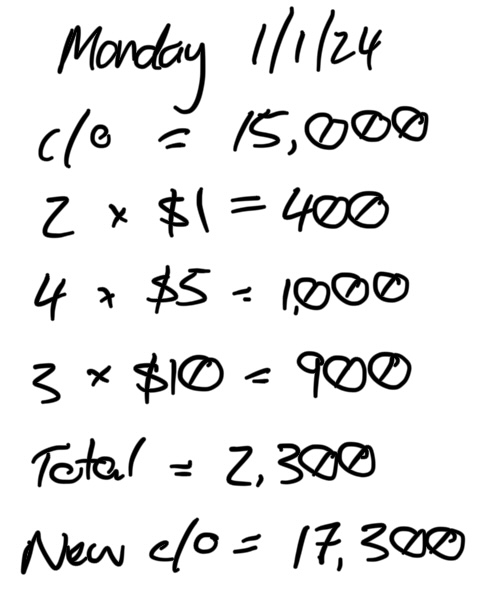 Monday 1/1/24
c/o = 15,000
2 x $1 = 400
4 x $5 = 1,000
3 x $10 = 900
Total = 2,300
New c/o = 17,300